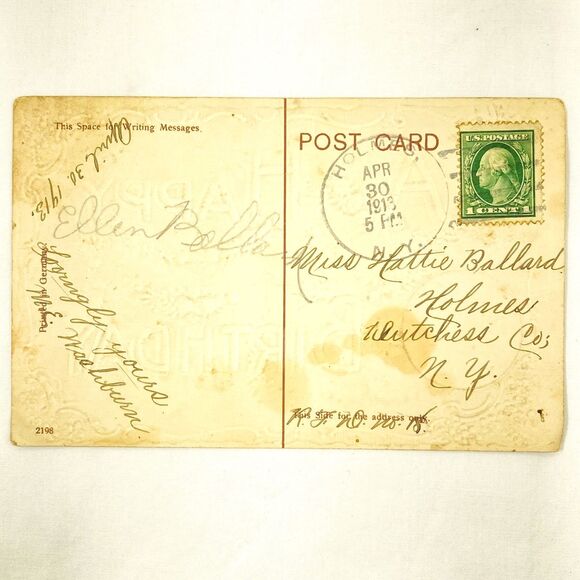 This Space for Writing Messages.
April 30. 1913.
Ellen Balla
Lovingly yours
E. Washburn
Germany
2198
POST CARD
HOLMES,
APR
30
1913
5 PM
N.Y.
U.S. POSTAGE
1 CENT 1
Miss Hattie Ballard
Holmes
Dutchess Co;
N. Y.
This Side for the address only.
R. F. D. No.